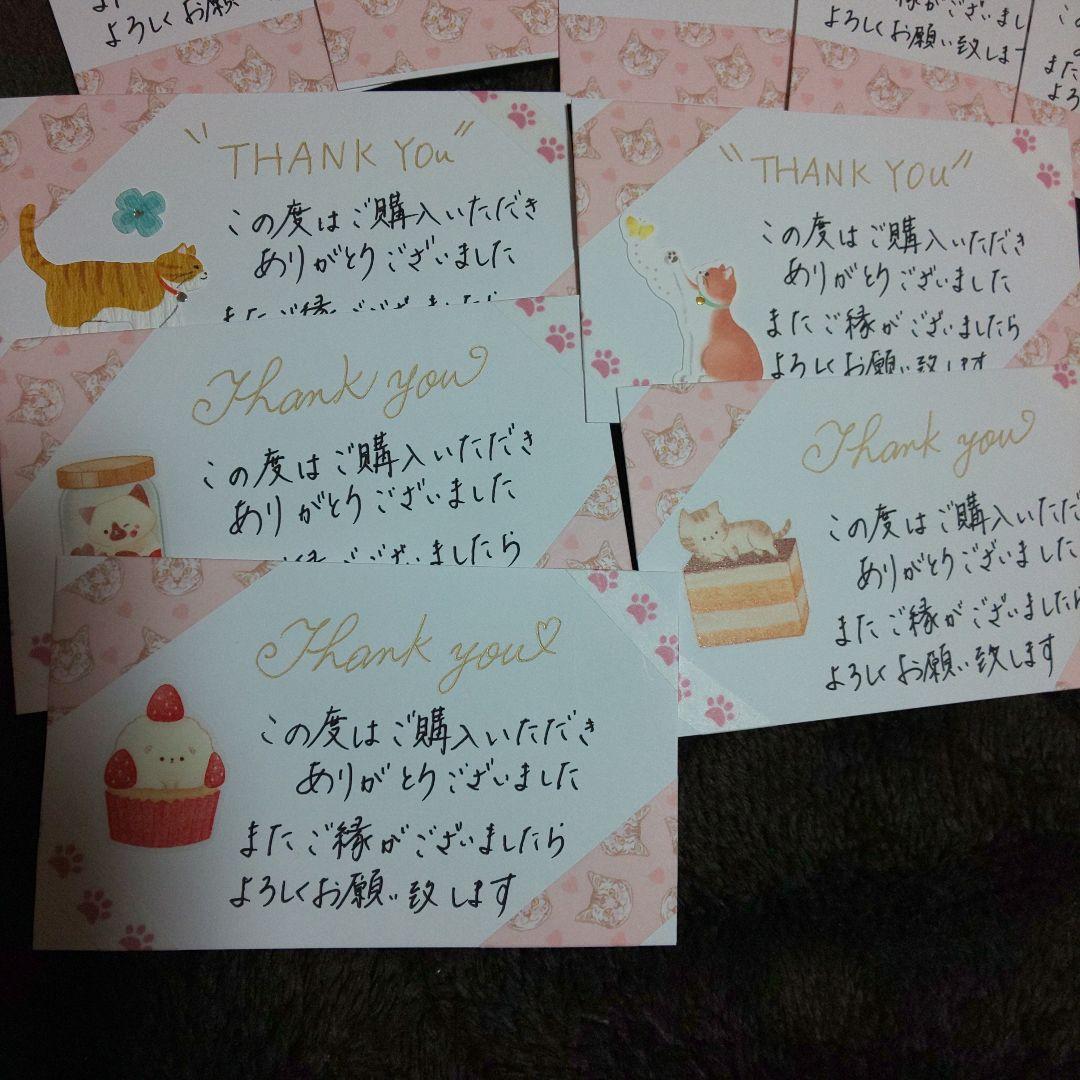 よろしくお願い
縁がございまし
よろしくお願い致します
"THANK YOU"
この度はご購入いただき
ありがとうございました
またご縁がございましたら
"THANK YOU"
この度はご購入いただき
ありがとうございました
またご縁がございましたら
よろしくお願い致します
Thank you
この度はご購入いただき
ありがとうございました
ご縁がございましたら
Thank you
この度はご購入いただき
ありがとうございました
またご縁がございましたら
よろしくお願い致します
Thank you
この度はご購入いただき
ありがとうございました
またご縁がございましたら
よろしくお願い致します